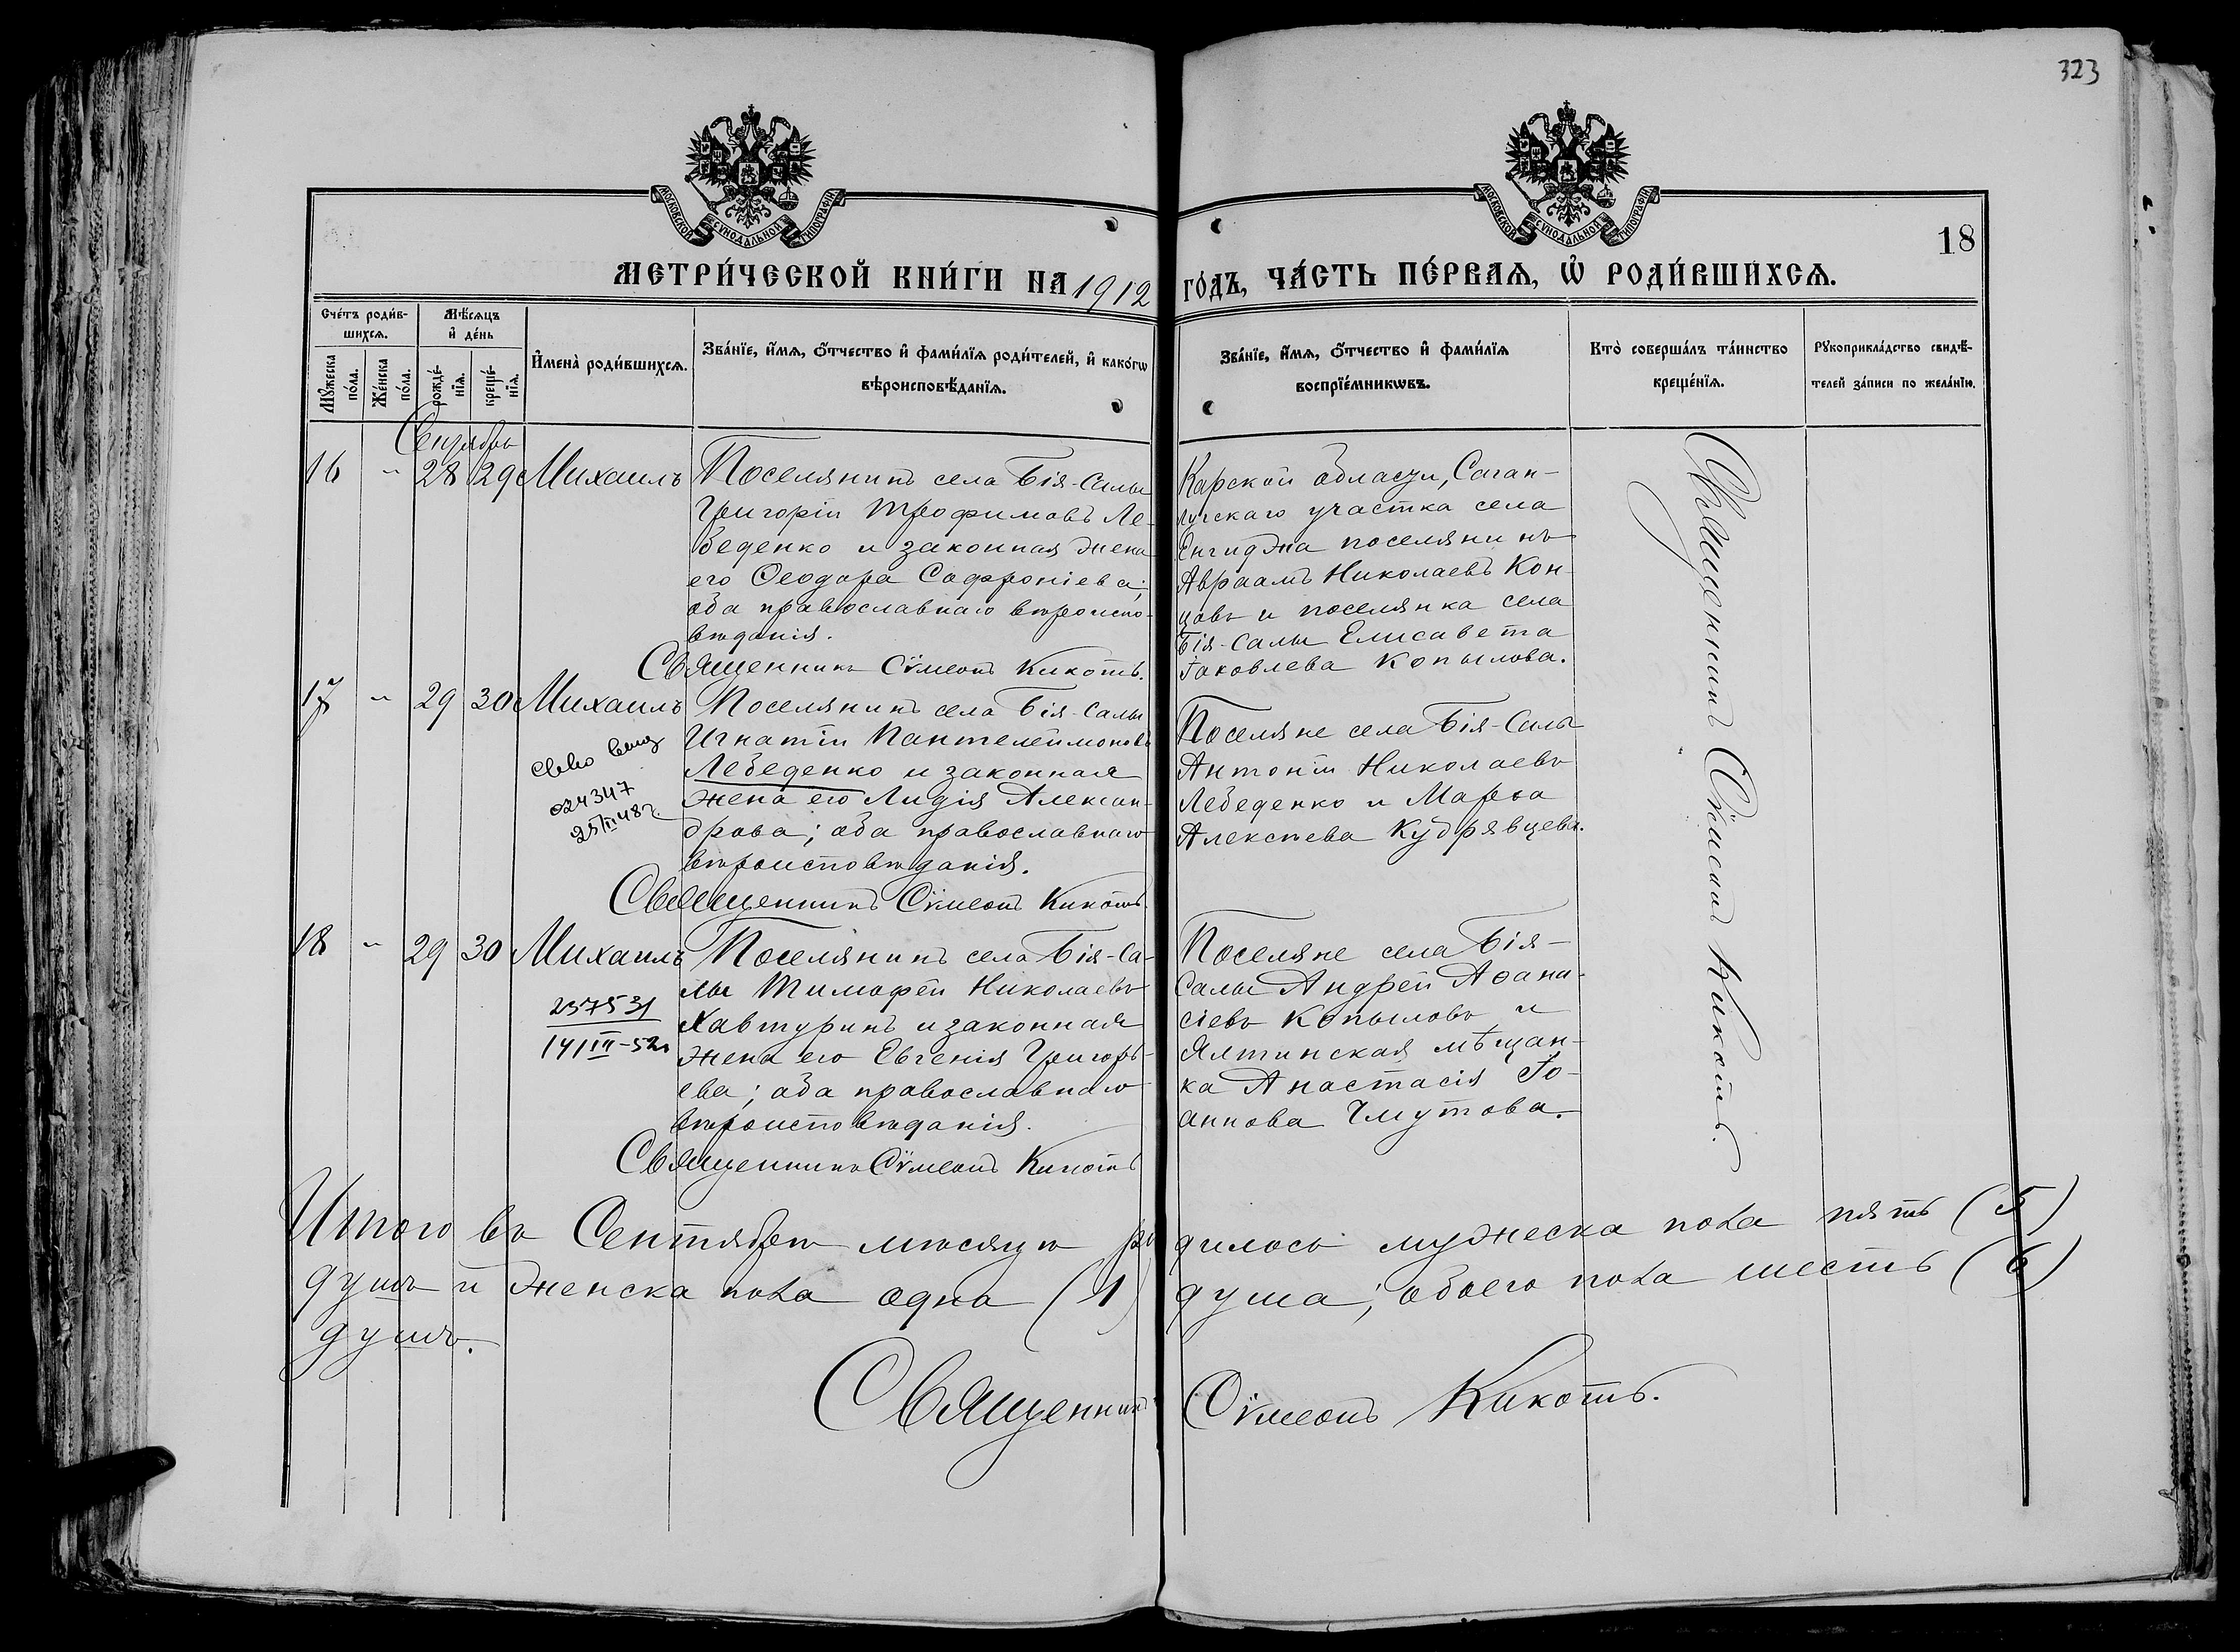 323
МОСКОВСКОЙ СѴНОДАЛЬНОЙ ТИПОГРАФІИ
МОСКОВСКОЙ СѴНОДАЛЬНОЙ ТИПОГРАФІИ
18
МЕТРИ́ЧЕСКОЙ КНИ́ГИ НА 1912 ГО́ДЪ, ЧА́СТЬ ПЕ́РВАѦ, Ѡ҆ РОДИ́ВШИХСѦ.
Сче́тъ роди́в-
шихсѧ.
Мѣ́сѧцъ
и҆ де́нь
Мꙋ́жеска
по́ла.
Же́нска
по́ла.
рожде́-
нїѧ.
креще́-
нїѧ.
И҆мена̀ роди́вшихсѧ.
Зва́нїе, и҆́мѧ, ѻ҆́тчество и҆ фами́лїѧ роди́телей, и҆ како́гѡ
вѣроисповѣ́данїѧ.
Зва́нїе, и҆́мѧ, ѻ҆́тчество и҆ фами́лїѧ
воспрїе́мникѡвъ.
Кто̀ соверша́лъ та́инство
креще́нїѧ.
Рꙋкоприкла́дство свидѣ́-
телей за́писи по жела́нїю.
Сентябрь
16 " 28 29 Михаилъ
Поселянинъ села Бія-Салы
Григорій Трофимовъ Ле-
беденко и законная жена
его Ѳеодора Софроніева;
оба православнаго вѣроиспо-
вѣданія.
Священникъ Сѵмеонъ Кикоть.
Карской области, Саган-
лугскаго участка села
Енгиджа поселянинъ
Авраамъ Николаевъ Кон-
цовъ и поселянка села
Бія-Салы Елисавета
Іаковлева Копылова.
17 " 29 30 Михаилъ
024347
25/III 48 г.
Поселянинъ села Бія-Салы
Игнатій Пантелеймоновъ
Лебеденко и законная
жена его Лидія Алексан-
дрова; оба православнаго
вѣроисповѣданія.
Священникъ Сѵмеонъ Кикоть.
Поселяне села Бія-Салы
Антоній Николаевъ
Лебеденко и Марѳа
Алексѣева Кудрявцева.
18 " 29 30 Михаилъ
237531
14/III-52г
Поселянинъ села Бія-Са-
лы Тимофей Николаевъ
Хавтуринъ и законная
жена его Евгенія Григорь-
ева; оба православнаго
вѣроисповѣданія.
Священникъ Сѵмеонъ Кикоть
Поселяне села Бія-
Салы Андрей Аѳана-
сіевъ Копыловъ и
Ялтинская мѣщан-
ка Анастасія Іо-
аннова Чмутова.
Священникъ Сѵмеонъ Кикоть.
Итого въ Сентябрѣ мѣсяцѣ родилось мужеска пола пять (5)
душъ и женска пола одна (1) душа; обоего пола шесть (6)
душъ.
Священникъ Сѵмеонъ Кикоть.